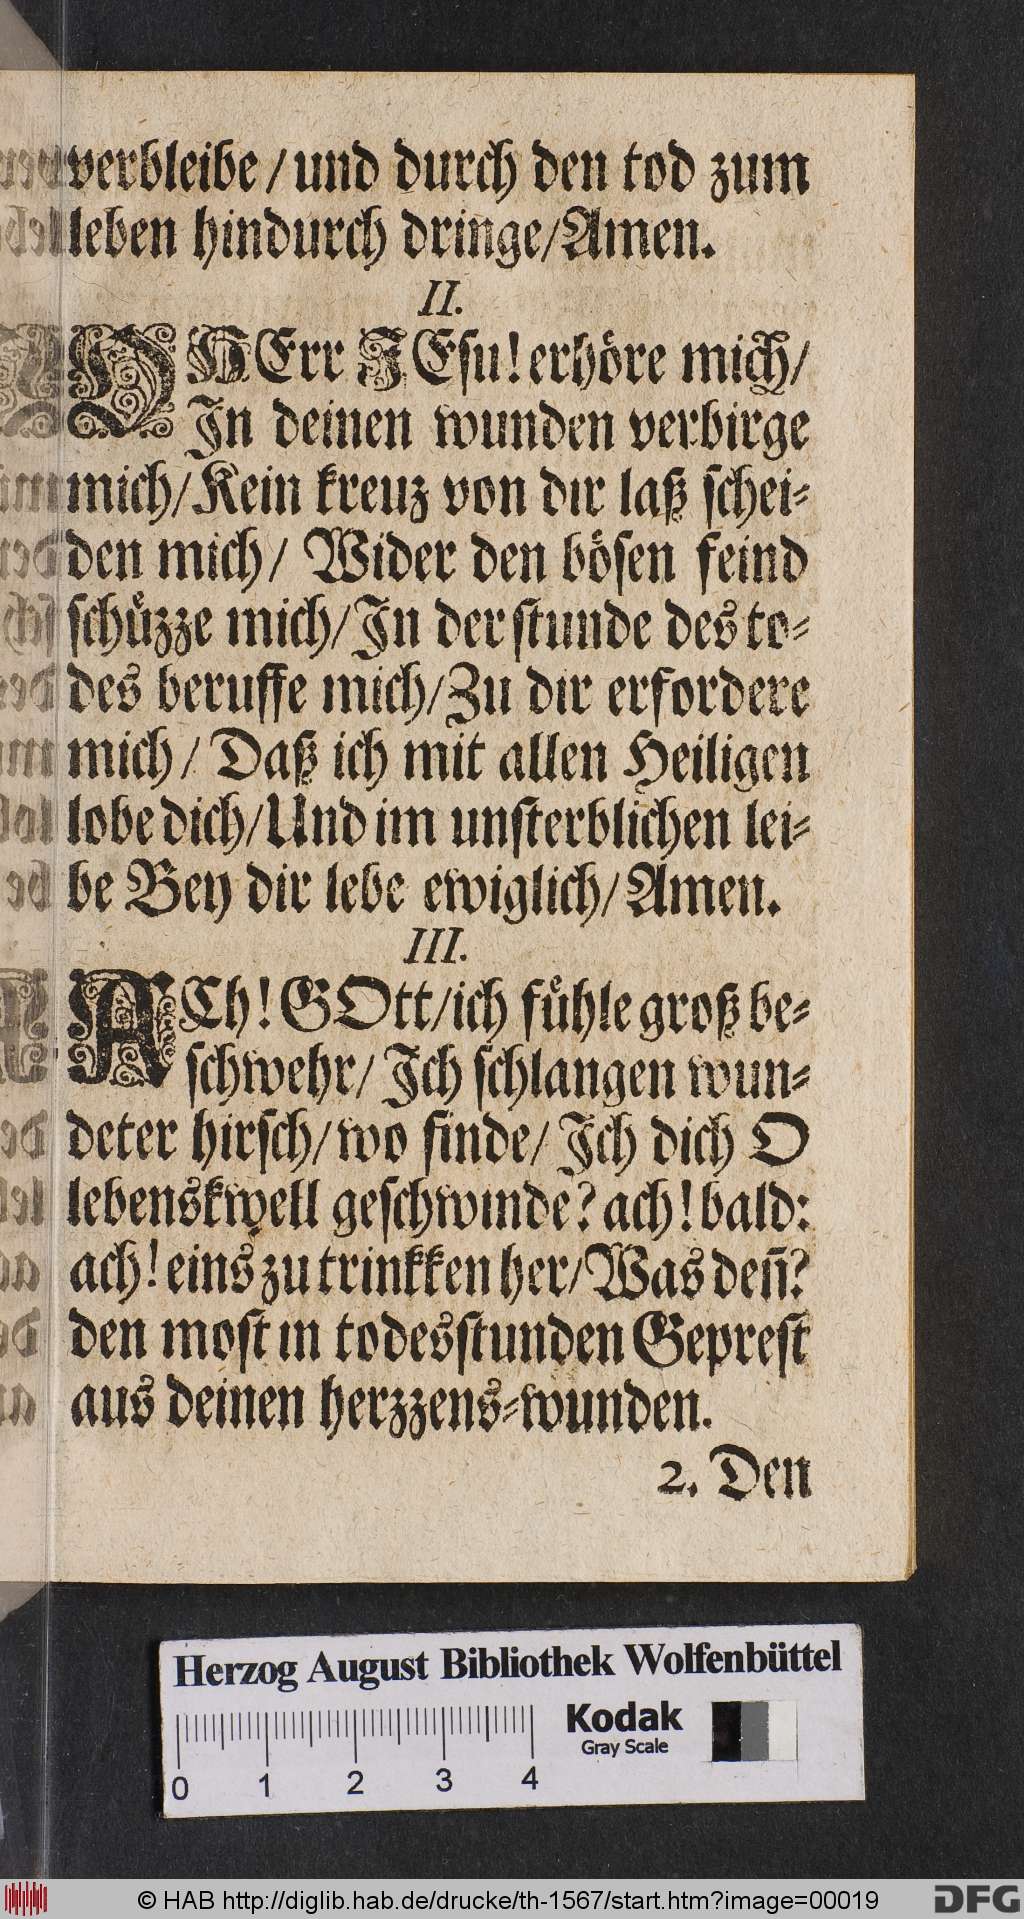 verbleibe / und durch den tod zum
leben hindurch dringe/Amen.
II.
O HErr JEsu! erhöre mich/
In deinen wunden verbirge
mich/Kein kreuz von dir laß schei⸗
den mich/ Wider den bösen feind
schüzze mich/In der stunde des to⸗
des beruffe mich/Zu dir erfordere
mich/ Daß ich mit allen Heiligen
lobe dich/Und im unsterblichen lei⸗
be Bey dir lebe ewiglich/Amen.
III.
ACh! GOtt/ich fühle groß be⸗
schwehr/ Ich schlangen wun⸗
deter hirsch/wo finde/ Ich dich O
lebenskwell geschwinde? ach! bald:
ach! eins zu trinkken her/Was deñ?
den most in todesstunden Geprest
aus deinen herzzens⸗wunden.
2. Den
Herzog August Bibliothek Wolfenbüttel
Kodak
Gray Scale
0 1 2 3 4
© HAB http://diglib.hab.de/drucke/th-1567/start.htm?image=00019
DFG